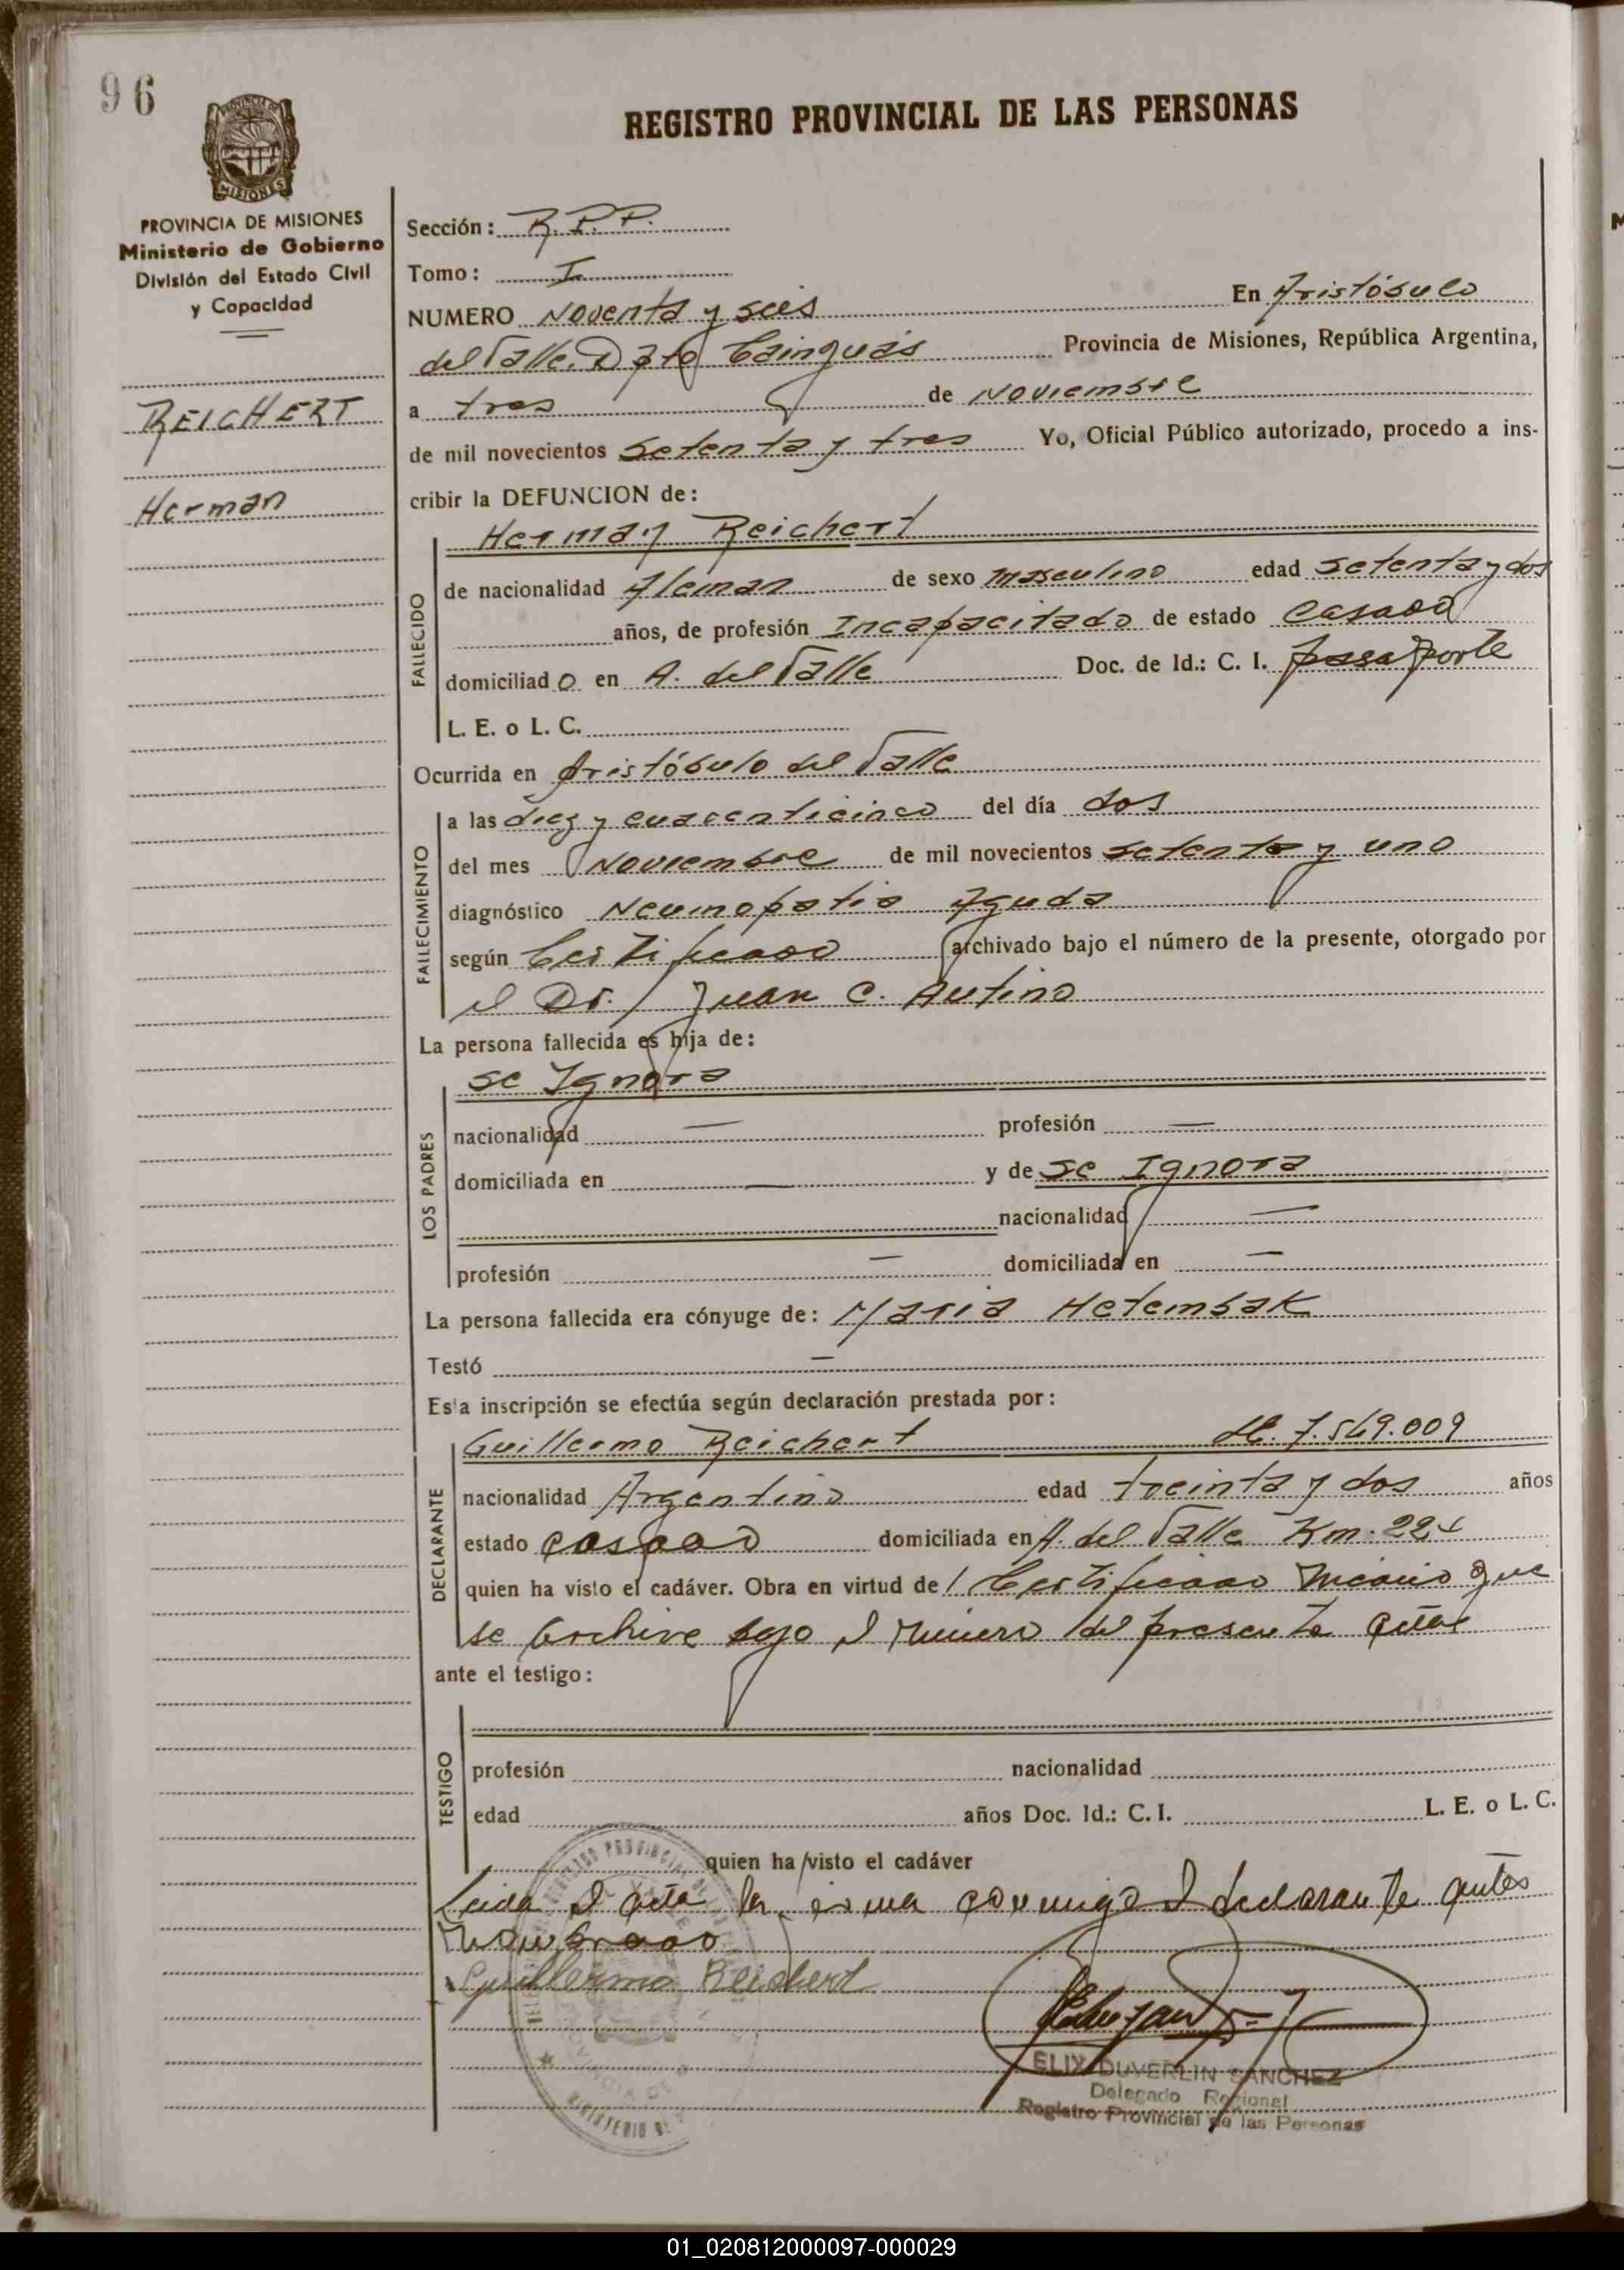 96
REGISTRO PROVINCIAL DE LAS PERSONAS
PROVINCIA DE MISIONES
Ministerio de Gobierno
División del Estado Civil
y Capacidad
REICHERT
Herman
Sección: R.P.P.
Tomo: I
NUMERO Noventa y seis En Aristóbulo
del Valle. Dpto Cainguás Provincia de Misiones, República Argentina,
a tres de Noviembre
de mil novecientos setenta y tres Yo, Oficial Público autorizado, procedo a ins-
cribir la DEFUNCION de:
Herman Reichert
FALLECIDO
de nacionalidad Aleman de sexo masculino edad setenta y dos
años, de profesión Incapacitado de estado casado
domiciliado en A. del Valle Doc. de Id.: C. I. pasaporte
L. E. o L. C.
Ocurrida en Aristóbulo del Valle
FALLECIMIENTO
a las diez y cuarenticinco del día dos
del mes Noviembre de mil novecientos setenta y uno
diagnóstico Neumopatia Aguda
según Certificado archivado bajo el número de la presente, otorgado por
el Dr. Juan C. Autino
La persona fallecida es hija de:
se Ignora
LOS PADRES
nacionalidad — profesión —
domiciliada en — y de se Ignora
nacionalidad —
profesión — domiciliada en —
La persona fallecida era cónyuge de: Maria Hetembak
Testó —
Esta inscripción se efectúa según declaración prestada por:
Guillermo Reichert 7.569.009
DECLARANTE
nacionalidad Argentino edad treinta y dos años
estado casado domiciliada en A. del Valle Km. 224
quien ha visto el cadáver. Obra en virtud de Certificado que
se archive bajo el número del presente acta
ante el testigo:
TESTIGO
profesión nacionalidad
edad años Doc. Id.: C. I. L. E. o L. C.
quien ha visto el cadáver
Leida el acta la firma conmigo el declarante antes
nombrado
Guillermo Reichert
ELIX DUVERLIN SANCHEZ
Delegado Regional
Registro Provincial de las Personas
01_020812000097-000029